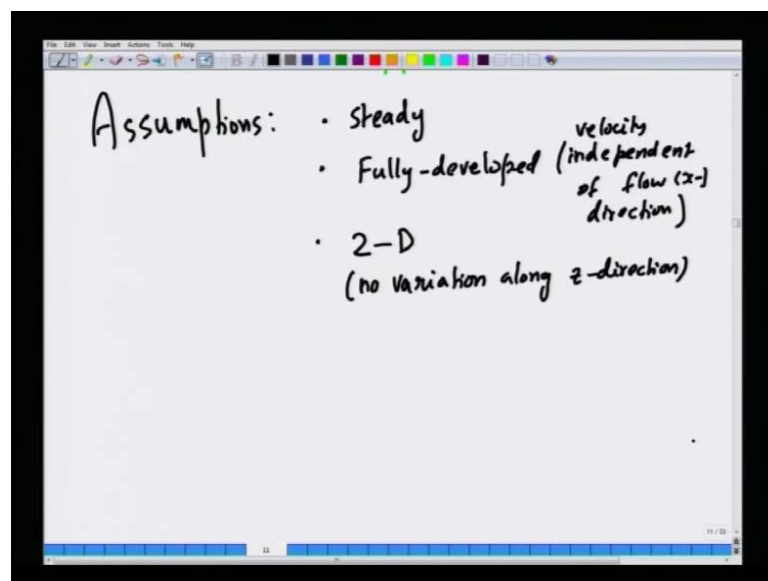 File Edit View Insert Actions Tools Help
Assumptions: • steady
• Fully-developed (velocity independent
of flow (x-)
direction)
• 2-D
(no variation along z-direction)
11